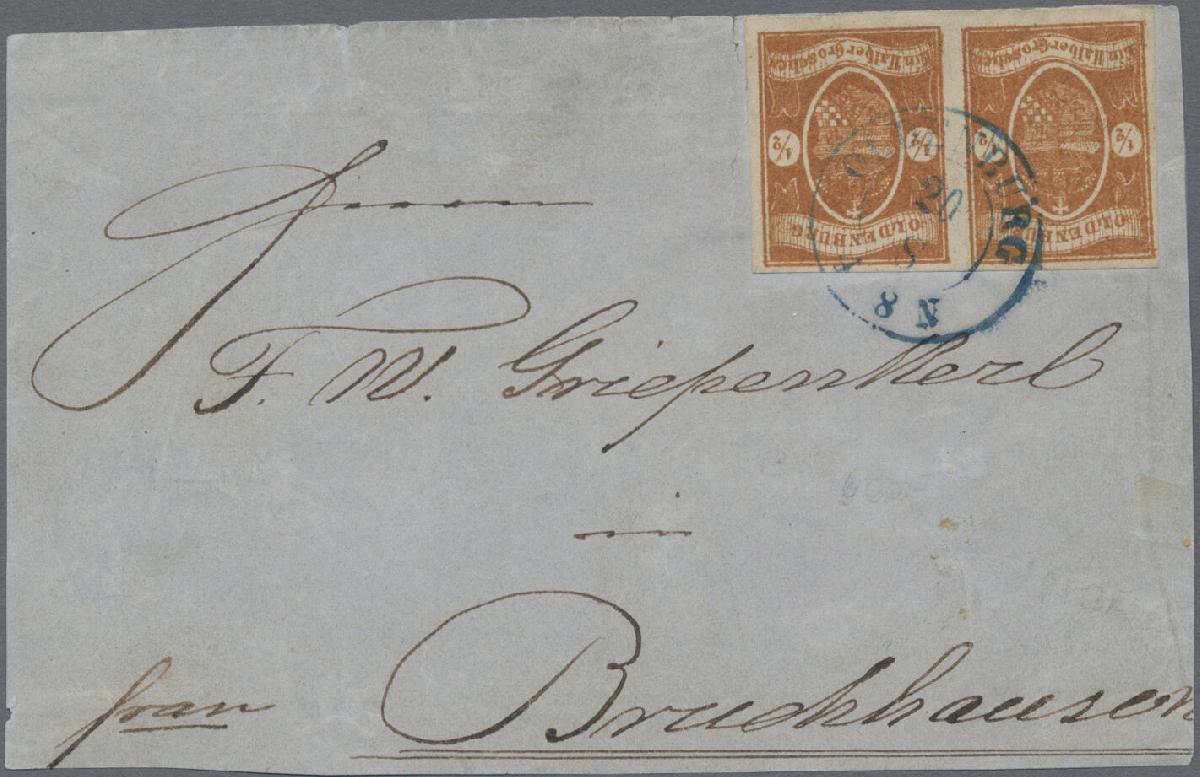 Ein Halber Groschen Ein Halber Groschen
1/2 1/2 1/2 1/2
OLDENBURG OLDENBURG
OLDENBURG
20
N 8
Herrn
F. W. Griepenkerl
in
Bruchhausen
fran